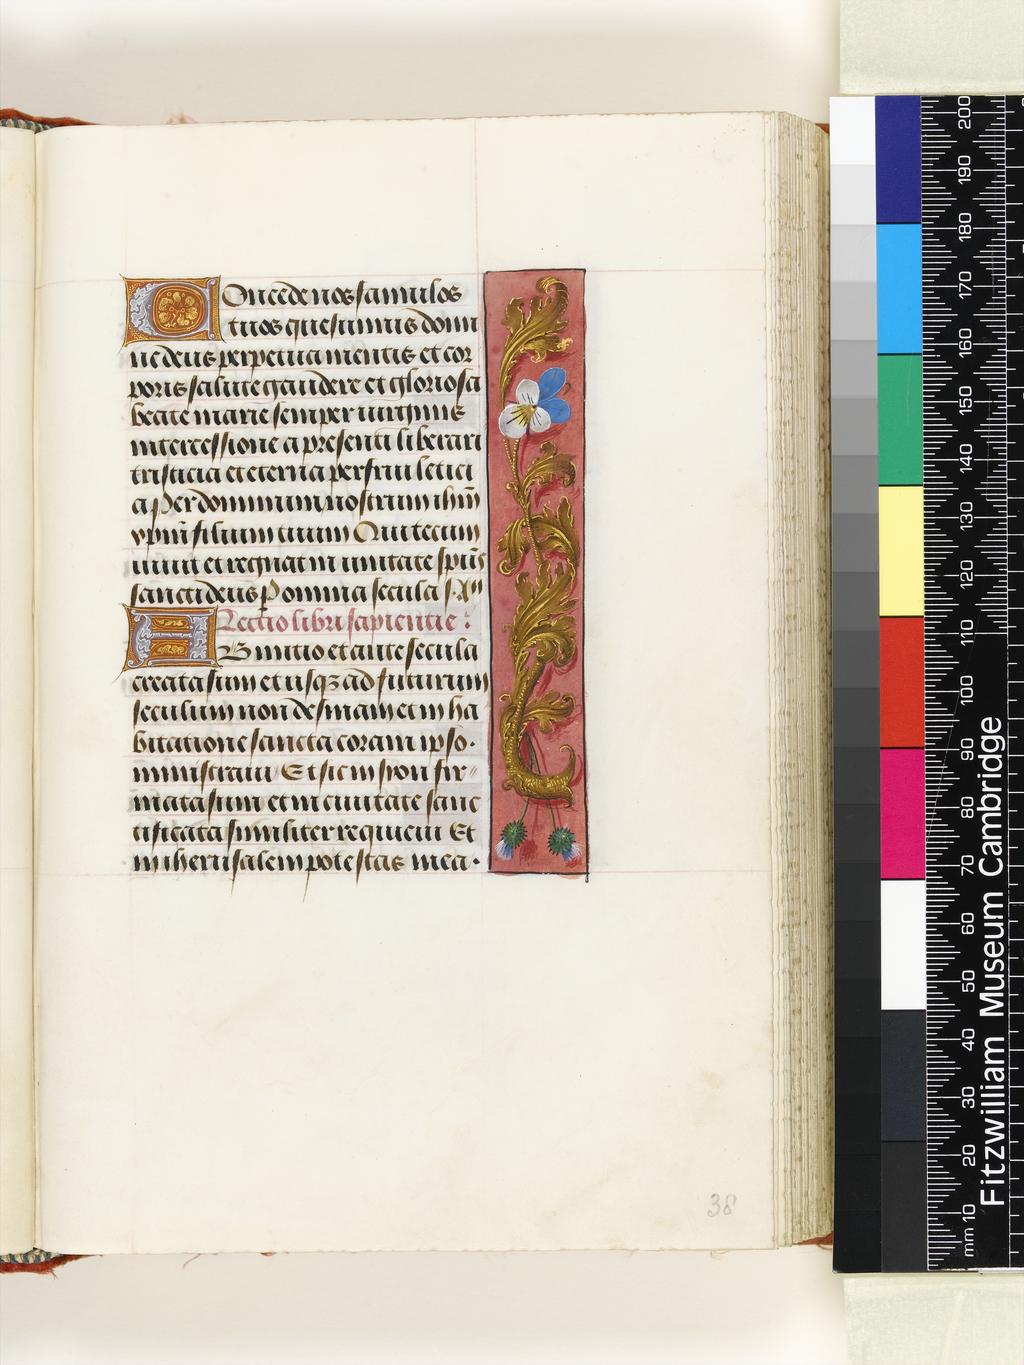 Concede nos famulos
tuos quesumus domi
ne deus perpetua mentis et cor
poris salute gaudere et gloriosa
beate marie semper uirginis
intercessione a presenti liberari
tristicia et eterna perfrui letici
a Per dominum nostrum ihm̄
xp̄m filium tuum Qui tecum
uiuit et regnat in unitate sp̄us
sancti deus P omnia secula s. Am̄
Lectio libri sapientie:
AB initio et ante secula
creata sum et usqz ad futurum
seculum non desinam et in ha
bitatione sancta coram ipso.
ministraui Et sic in syon fir
mata sum et in ciuitate sanc
tificata similiter requieui Et
in iherusalem potestas mea.
38
Fitzwilliam Museum Cambridge
mm 10 20 30 40 50 60 70 80 90 100 110 120 130 140 150 160 170 180 190 200